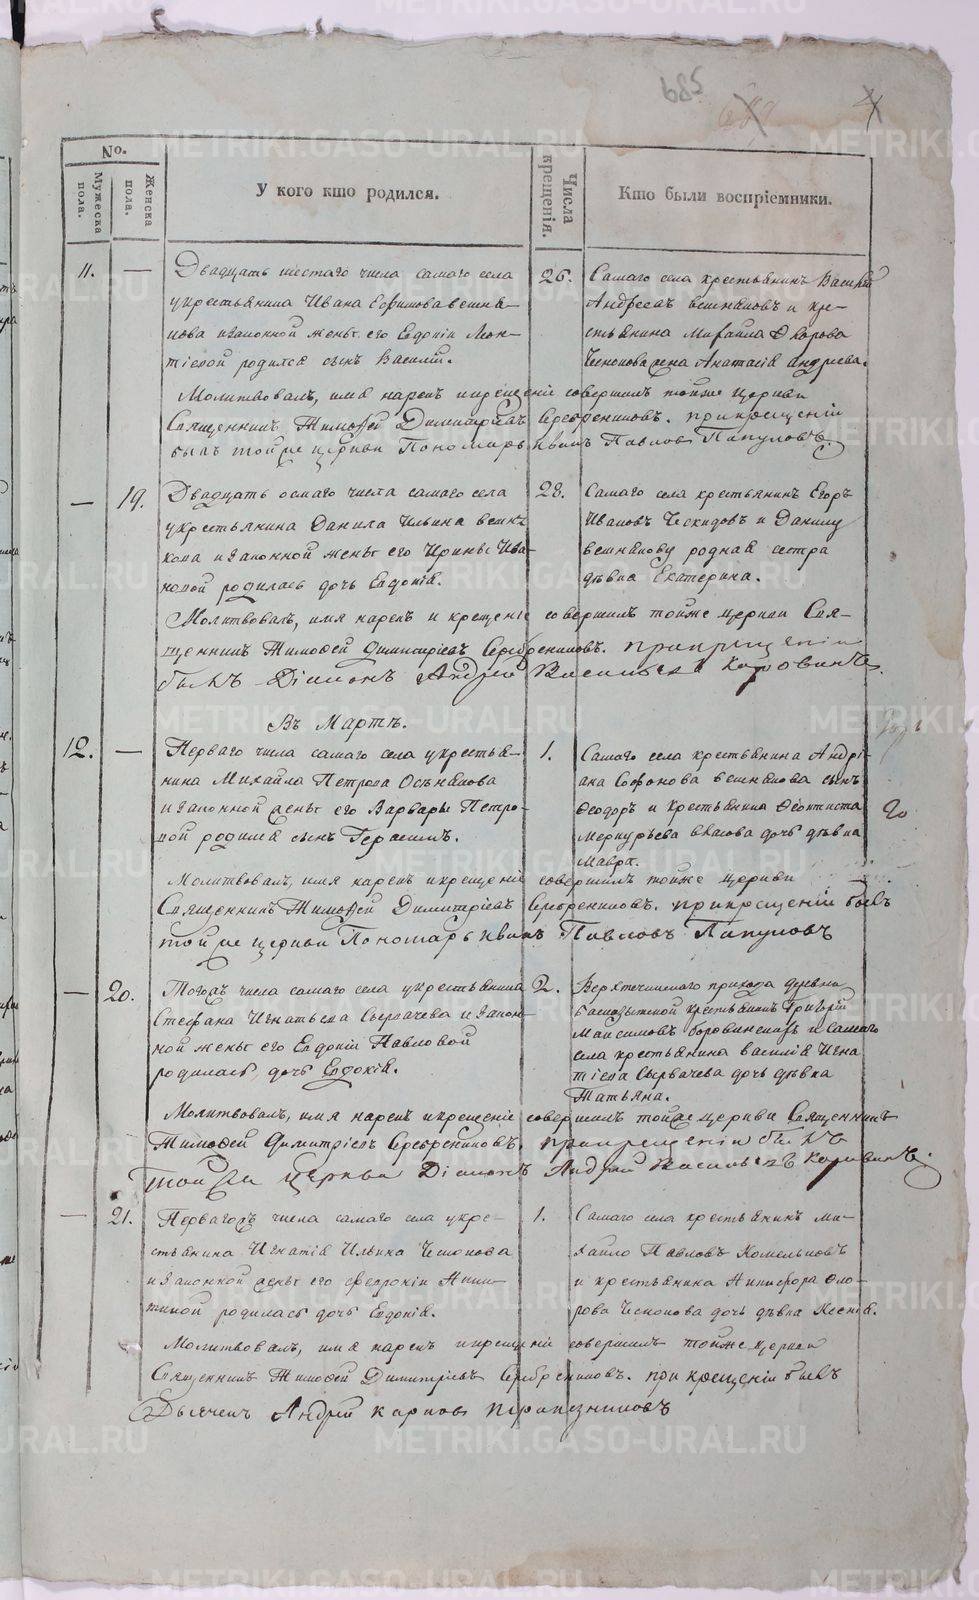 METRIKI.GASO-URAL.RU
685
No.
Мужеска пола.
Женска пола.
У кого кто родился.
Числа крещенія.
Кто были воспріемники.
11. —
Двадцать шестаго числа самаго села
укрестьянина Ивана Ефимова вешня-
кова изаконной жены его Евдокіи Леон-
тіевой родился сынъ Василій.
26.
Самаго села крестьянинъ Василій
Андреевъ вешняковъ и кре-
стьянина Михаила Ѳ
Чесноковажена Анатасія андреева.
Молитвовалъ, имя нарекъ икрещеніе совершилъ тойже церкви
Священникъ Тимоѳей Димитріевъ Серебрениковъ. прикрещеніи
былъ тойже церкви Пономарь Иванъ Павловъ Папуловъ
— 19.
Двадцать осмаго числа самаго села
укрестьянина Данила Ильина вешня-
кова изаконной жены его Ирины Ива-
новой родилась дочь Евдокія.
28.
Самаго села крестьянинъ Егоръ
Ивановъ и Данилу
вешнякову родная сестра
дѣвка Екатерина.
Молитвовалъ, имя нарекъ и крещеніе совершилъ тойже церкви Свя-
щенникъ Тимоѳей Димитріевъ Серебрениковъ. прикрещеніи
былъ Діаконъ Андрей Васильевъ Коровинъ.
Въ Мартѣ.
12. —
Перваго числа самаго села укрестья-
нина Михайла Петрова
изаконной жены его Варвары Петро-
вой родился сынъ Герасимъ.
1.
Самаго села крестьянина Андрі-
ана Софонова вешнякова сынъ
Ѳеодоръ и крестьянина Ѳеоктиста
Меркурьева дочь дѣвка
Мавра.
20
Молитвовалъ, имя нарекъ икрещеніе совершилъ тойже церкви
Священникъ Тимоѳей Димитріевъ Серебрениковъ. прикрещеніи былъ
тойже церкви Пономарь Иванъ Павловъ Папуловъ
— 20.
Тогожъ числа самаго села укрестьянина
Стефана Игнатьева Сырвачева изакон-
ной жены его Евдокіи Павловой
родилась дочь Евдокія.
2.
Верхтеченскаго прихода деревни
крестьянинъ Григорій
Максимовъ и самаго
села крестьянина василія Игна
тіева Сырвачева дочь дѣвка
Татьяна.
Молитвовалъ, имя нарекъ икрещеніе совершилъ тойже церкви Священникъ
Тимоѳей Димитріевъ Серебрениковъ. прикрещеніи былъ
тойже церкви Діаконъ Андрей Васильевъ Коровинъ.
— 21.
Первагожъ числа самаго села укре-
стьянина Игнатія Ильина Чеснокова
изаконной жены его Ники-
тиной родилась дочь Евдокія.
1.
Самаго села крестьянинъ Ми-
хайло Павловъ
и крестьянина Никифора Фло-
рова Чеснокова дочь дѣвка Ксенія.
Молитвовалъ, имя нарекъ икрещеніе совершилъ тойже церкви
Священникъ Тимоѳей Димитріевъ Серебрениковъ. при крещеніи былъ
Дьячекъ Андрей карповъ